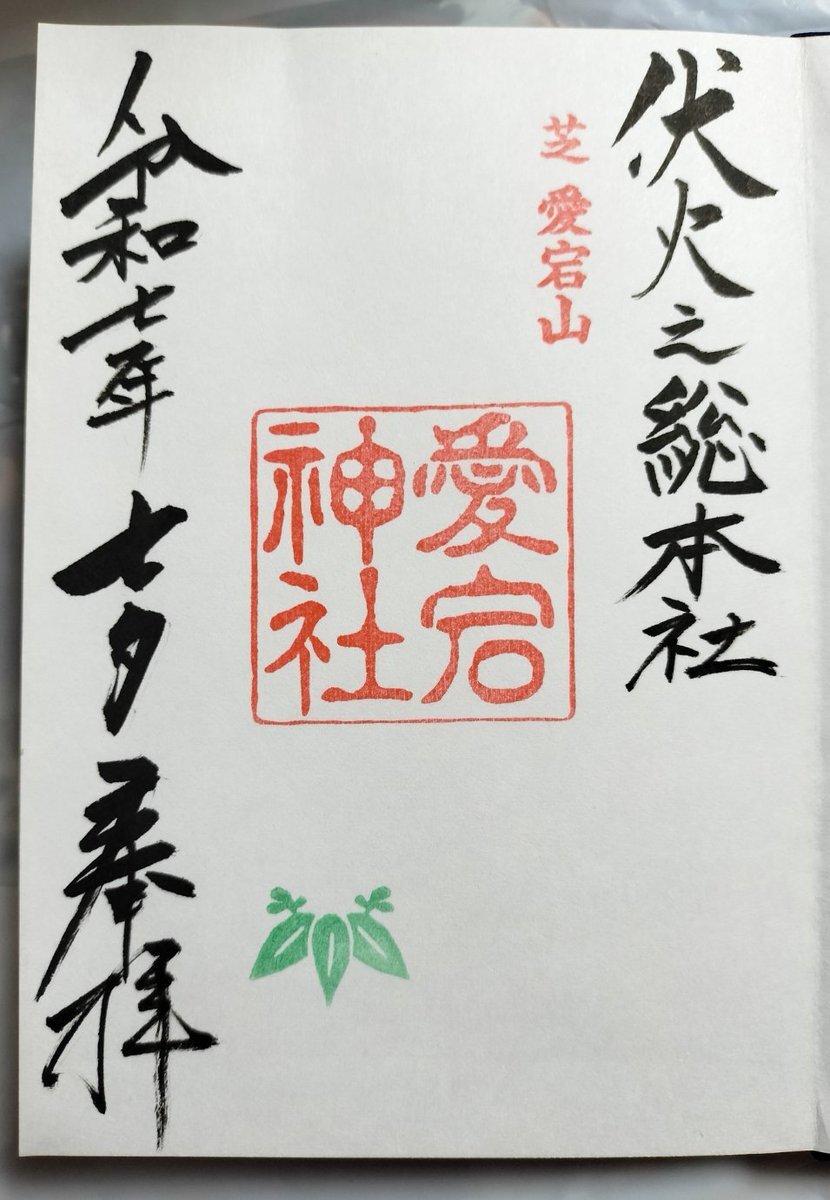 伏火之総本社
芝 愛宕山
愛宕
神社
令和七年 七夕 奉拝